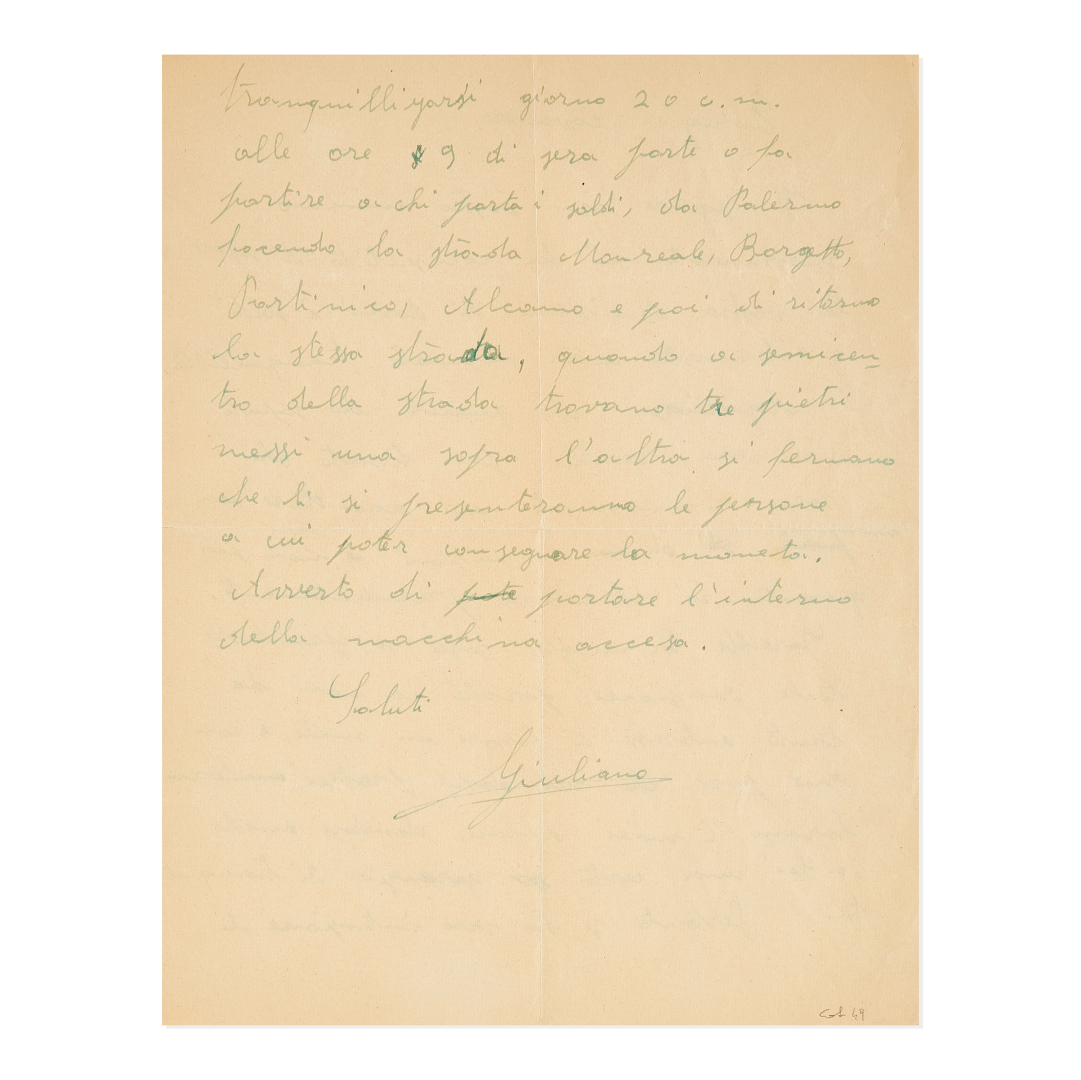 tranquilligarsi giorno 20 c.m.
alle ore 9 di sera parte o fa
partire a chi porta i soldi, da Palermo
facendo la strada Monreale, Borgetto,
Partinico, Alcamo e poi di ritorno
la stessa strada, quando a semicen-
tro della strada trovano tre pietri
messi una sopra l'altra si fermano
che lì si presenteranno le persone
a cui poter consegnare la moneta.
Avverto di portare l'interno
della macchina accesa.
Saluti
Giuliano
49